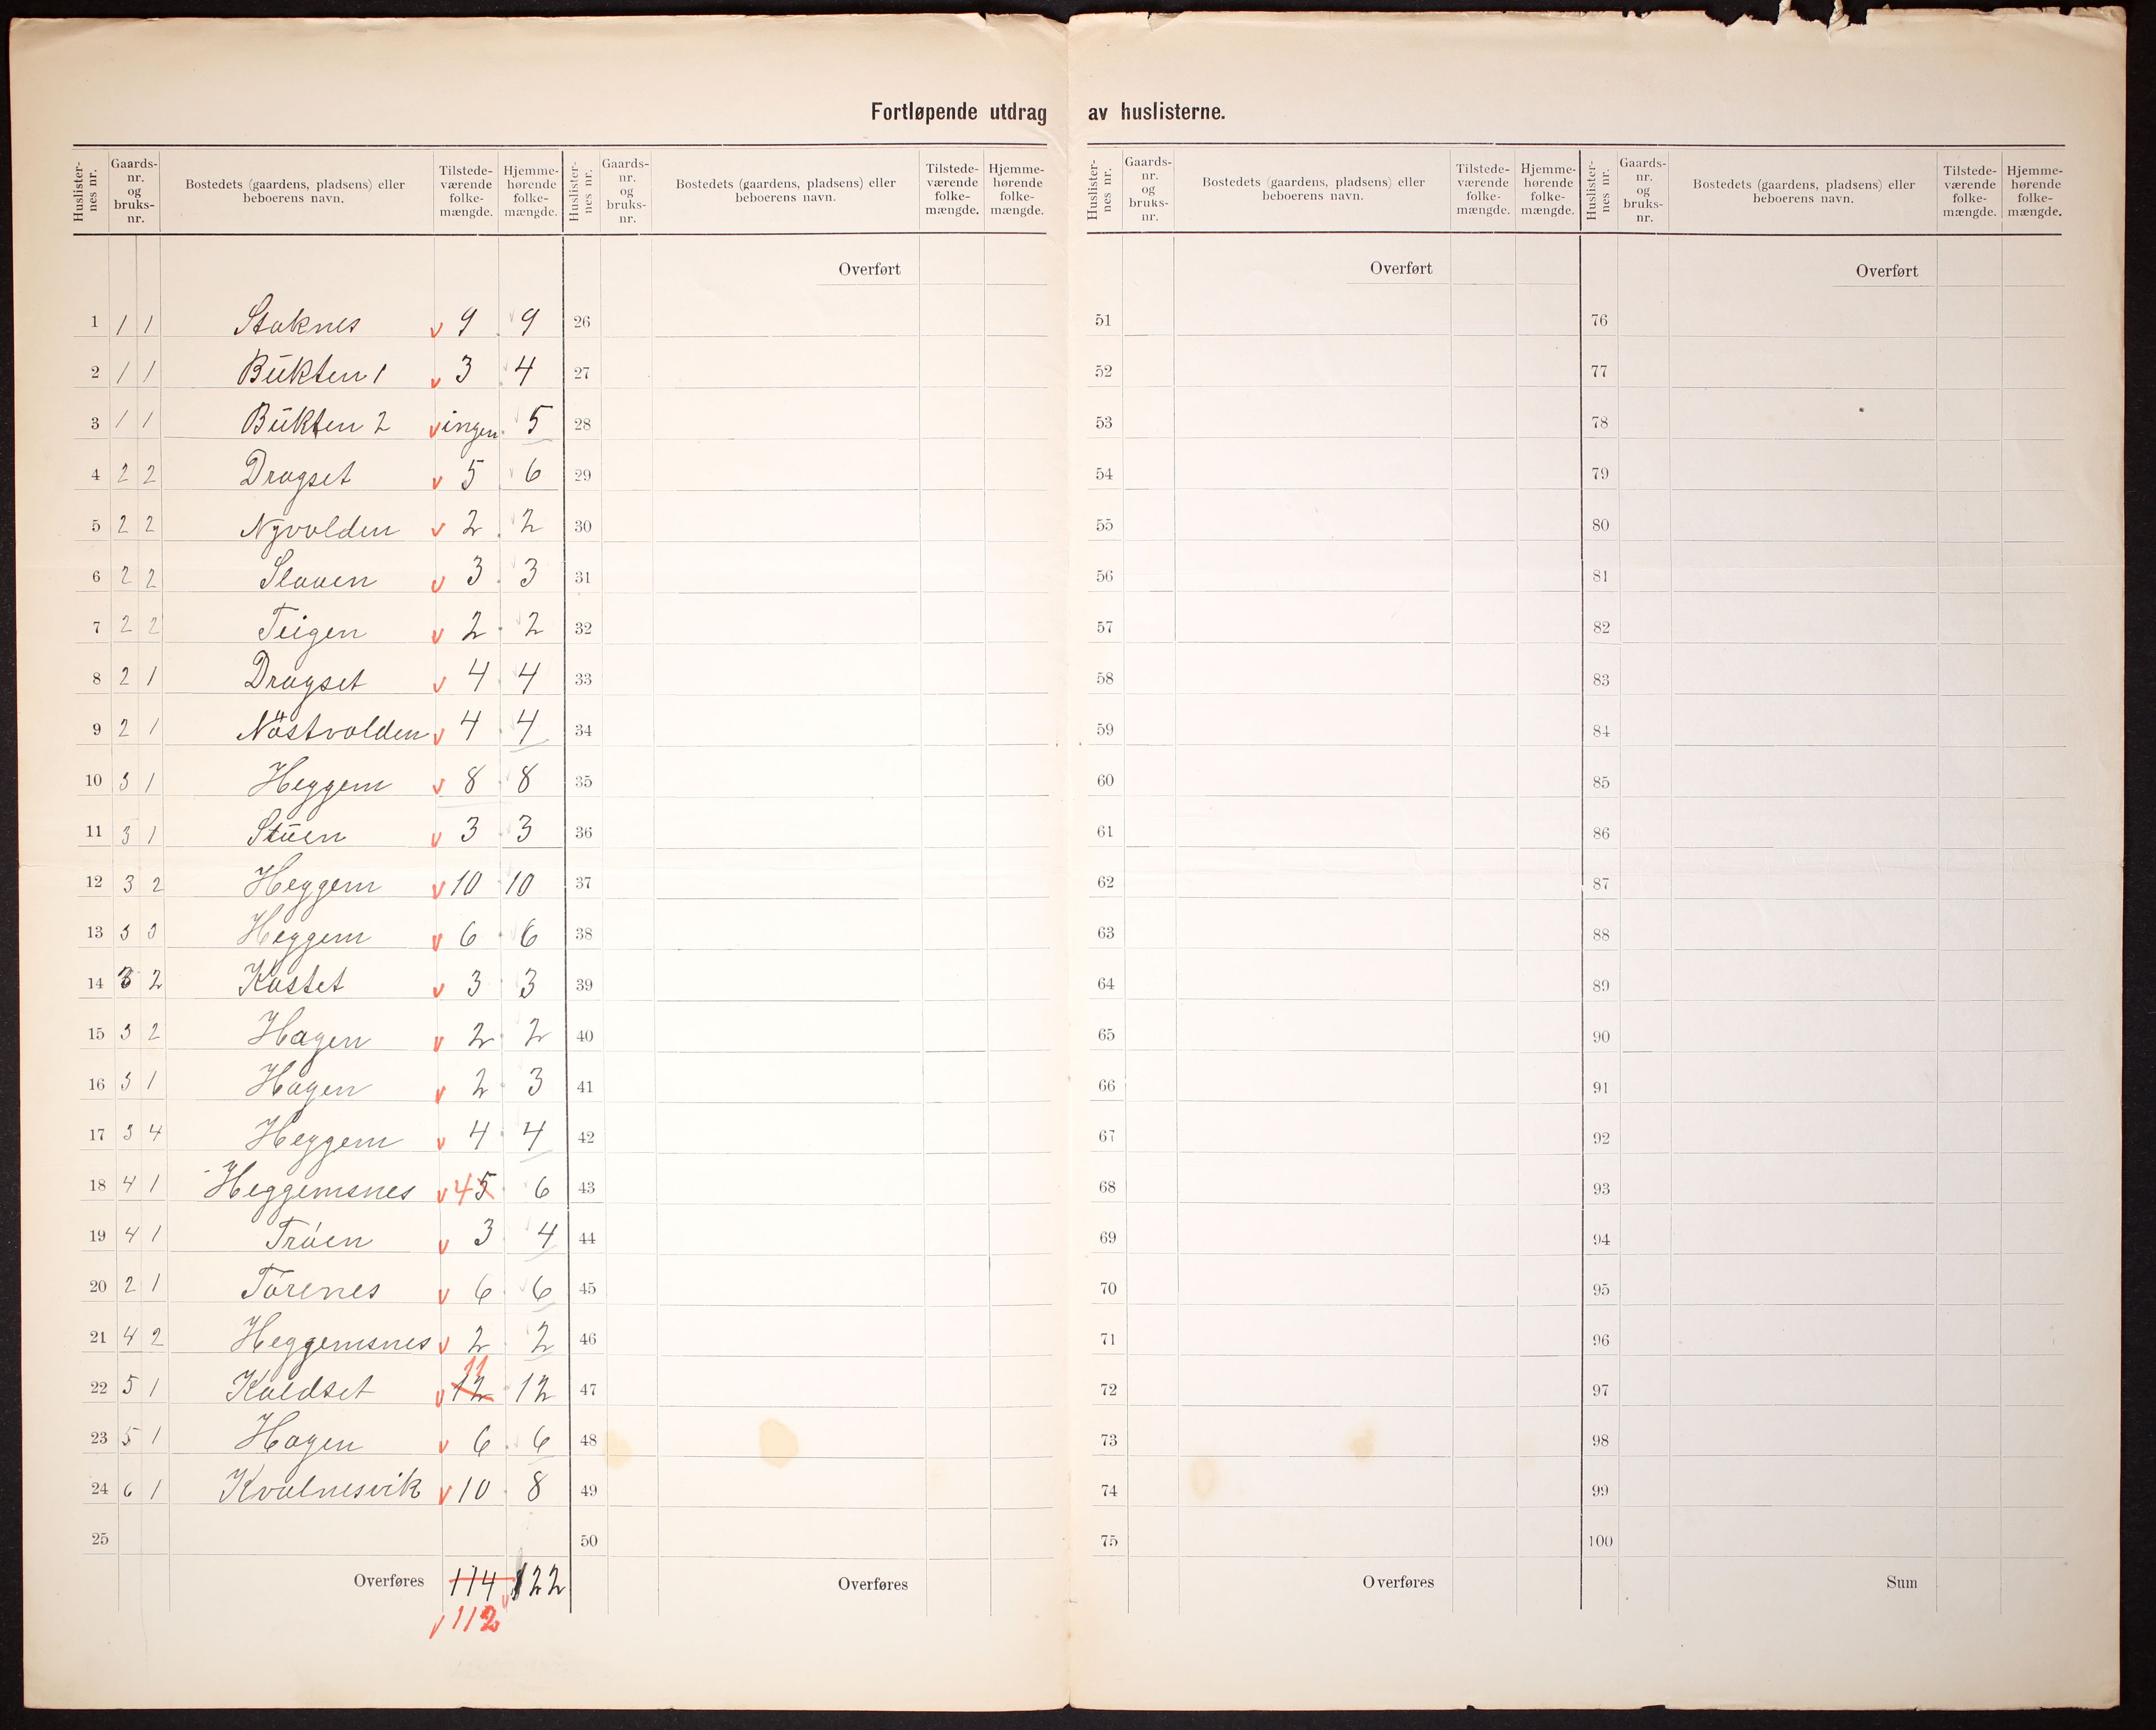 Fortløpende utdrag av huslisterne.
Huslister-nes nr. Gaards-nr. og bruks-nr. Bostedets (gaardens, pladsens) eller beboerens navn. Tilstede-værende folke-mængde. Hjemme-hørende folke-mængde. Huslister-nes nr. Gaards-nr. og bruks-nr. Bostedets (gaardens, pladsens) eller beboerens navn. Tilstede-værende folke-mængde. Hjemme-hørende folke-mængde. Huslister-nes nr. Gaards-nr. og bruks-nr. Bostedets (gaardens, pladsens) eller beboerens navn. Tilstede-værende folke-mængde. Hjemme-hørende folke-mængde. Huslister-nes nr. Gaards-nr. og bruks-nr. Bostedets (gaardens, pladsens) eller beboerens navn. Tilstede-værende folke-mængde. Hjemme-hørende folke-mængde.
Overført Overført Overført
1 1 1 Staknes 9 9 26 51 76
2 1 1 Bükten 1 3 4 27 52 77
3 1 1 Bükten 2 ingen 5 28 53 78
4 2 2 Dragset 5 6 29 54 79
5 2 2 Nyvolden 2 2 30 55 80
6 2 2 Slaaen 3 3 31 56 81
7 2 2 Teigen 2 2 32 57 82
8 2 1 Dragset 4 4 33 58 83
9 2 1 Nöstvolden 4 4 34 59 84
10 3 1 Heggem 8 8 35 60 85
11 3 1 Stüen 3 3 36 61 86
12 3 2 Heggem 10 10 37 62 87
13 3 3 Heggem 6 6 38 63 88
14 3 2 Kastet 3 3 39 64 89
15 3 2 Hagen 2 2 40 65 90
16 3 1 Hagen 2 3 41 66 91
17 3 4 Heggem 4 4 42 67 92
18 4 1 Heggemsnes 4 5 6 43 68 93
19 4 1 Tróen 3 4 44 69 94
20 2 1 Tórenes 6 6 45 70 95
21 4 2 Heggemsnes 2 2 46 71 96
22 5 1 Kaldset 11 12 12 47 72 97
23 5 1 Hagen 6 6 48 73 98
24 6 1 Kvalnesvik 10 8 49 74 99
25 50 75 100
Overføres 114 122 Overføres Overføres Sum
112